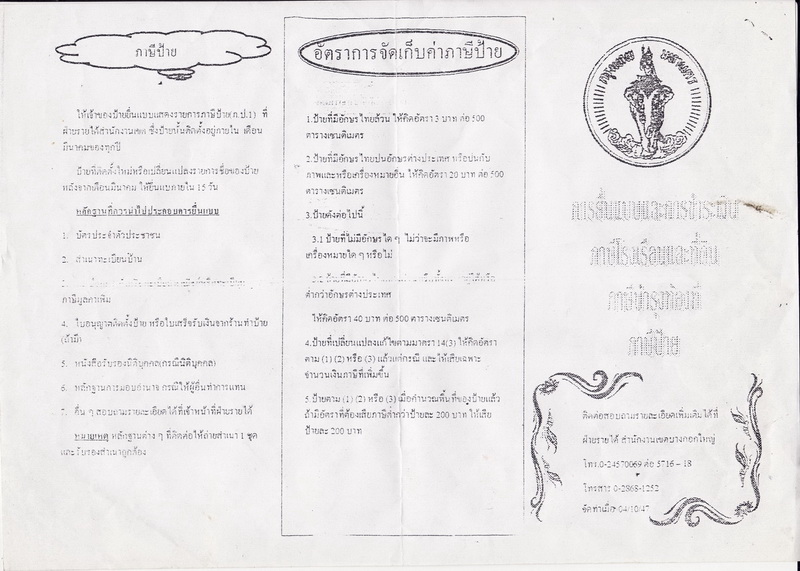 ภาษีป้าย
ให้เจ้าของป้ายยื่นแบบแสดงรายการภาษีป้าย(ภ.ป.1) ที่
ฝ่ายรายได้สำนักงานเขต ซึ่งป้ายนั้นติดตั้งอยู่ภายใน เดือน
มีนาคมของทุกปี
ป้ายที่ติดตั้งใหม่หรือเปลี่ยนแปลงรายการชื่อของป้าย
หลังจากเดือนมีนาคม ให้ยื่นแบบภายใน 15 วัน
หลักฐานที่ควรนำไปประกอบการยื่นแบบ
1. บัตรประจำตัวประชาชน
2. สำเนาทะเบียนบ้าน
ภาษีมูลค่าเพิ่ม
4. ใบอนุญาตติดตั้งป้าย หรือใบเสร็จรับเงินจากร้านทำป้าย
(ถ้ามี)
5. หนังสือรับรองนิติบุคคล(กรณีนิติบุคคล)
6. หลักฐานการมอบอำนาจ กรณีให้ผู้อื่นทำการแทน
7. อื่น ๆ สอบถามรายละเอียดได้ที่เจ้าหน้าที่ฝ่ายรายได้
หมายเหตุ หลักฐานต่าง ๆ ที่ติดต่อให้ถ่ายสำเนา 1 ชุด
และรับรองสำเนาถูกต้อง
อัตราการจัดเก็บค่าภาษีป้าย
1.ป้ายที่มีอักษรไทยล้วน ให้คิดอัตรา 3 บาท ต่อ 500
ตารางเซนติเมตร
2.ป้ายที่มีอักษรไทยปนอักษรต่างประเทศ หรือปนกับ
ภาพและหรือเครื่องหมายอื่น ให้คิดอัตรา 20 บาท ต่อ 500
ตารางเซนติเมตร
3.ป้ายดังต่อไปนี้
3.1 ป้ายที่ไม่มีอักษรใด ๆ ไม่ว่าจะมีภาพหรือ
เครื่องหมายใด ๆ หรือไม่
ต่ำกว่าอักษรต่างประเทศ
ให้คิดอัตรา 40 บาท ต่อ 500 ตารางเซนติเมตร
4.ป้ายที่เปลี่ยนแปลงแก้ไขตามมาตรา 14(3) ให้คิดอัตรา
ตาม (1) (2) หรือ (3) แล้วแต่กรณี และให้เสียเฉพาะ
จำนวนเงินภาษีที่เพิ่มขึ้น
5.ป้ายตาม (1) (2) หรือ (3) เมื่อคำนวณพื้นที่ของป้ายแล้ว
ถ้ามีอัตราที่ต้องเสียภาษีต่ำกว่าป้ายละ 200 บาท ให้เสีย
ป้ายละ 200 บาท
กรุงเทพมหานคร
การยื่นแบบและการชำระเงิน
ภาษีโรงเรือนและที่ดิน
ภาษีบำรุงท้องที่
ภาษีป้าย
ติดต่อสอบถามรายละเอียดเพิ่มเติมได้ที่
ฝ่ายรายได้ สำนักงานเขตบางกอกใหญ่
โทร.0-24570069 ต่อ 5716 – 18
โทรสาร 0-2868-1252
จัดทำเมื่อ 04/10/47